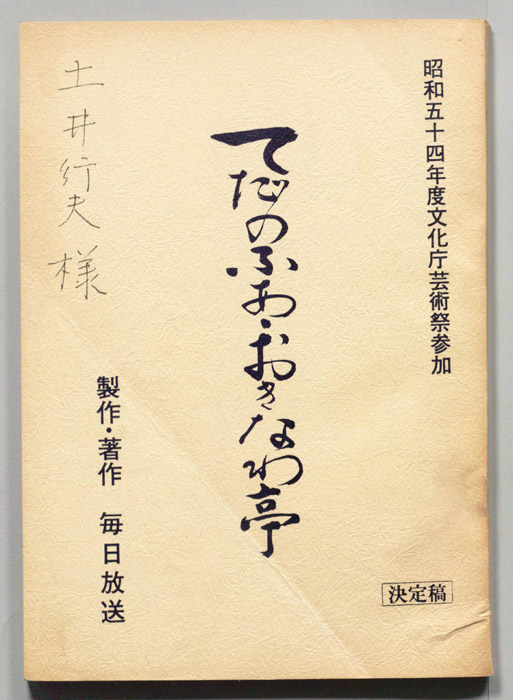 昭和五十四年度文化庁芸術祭参加
てだのふあ・おきなわ亭
製作・著作 毎日放送
土井行夫様
決定稿